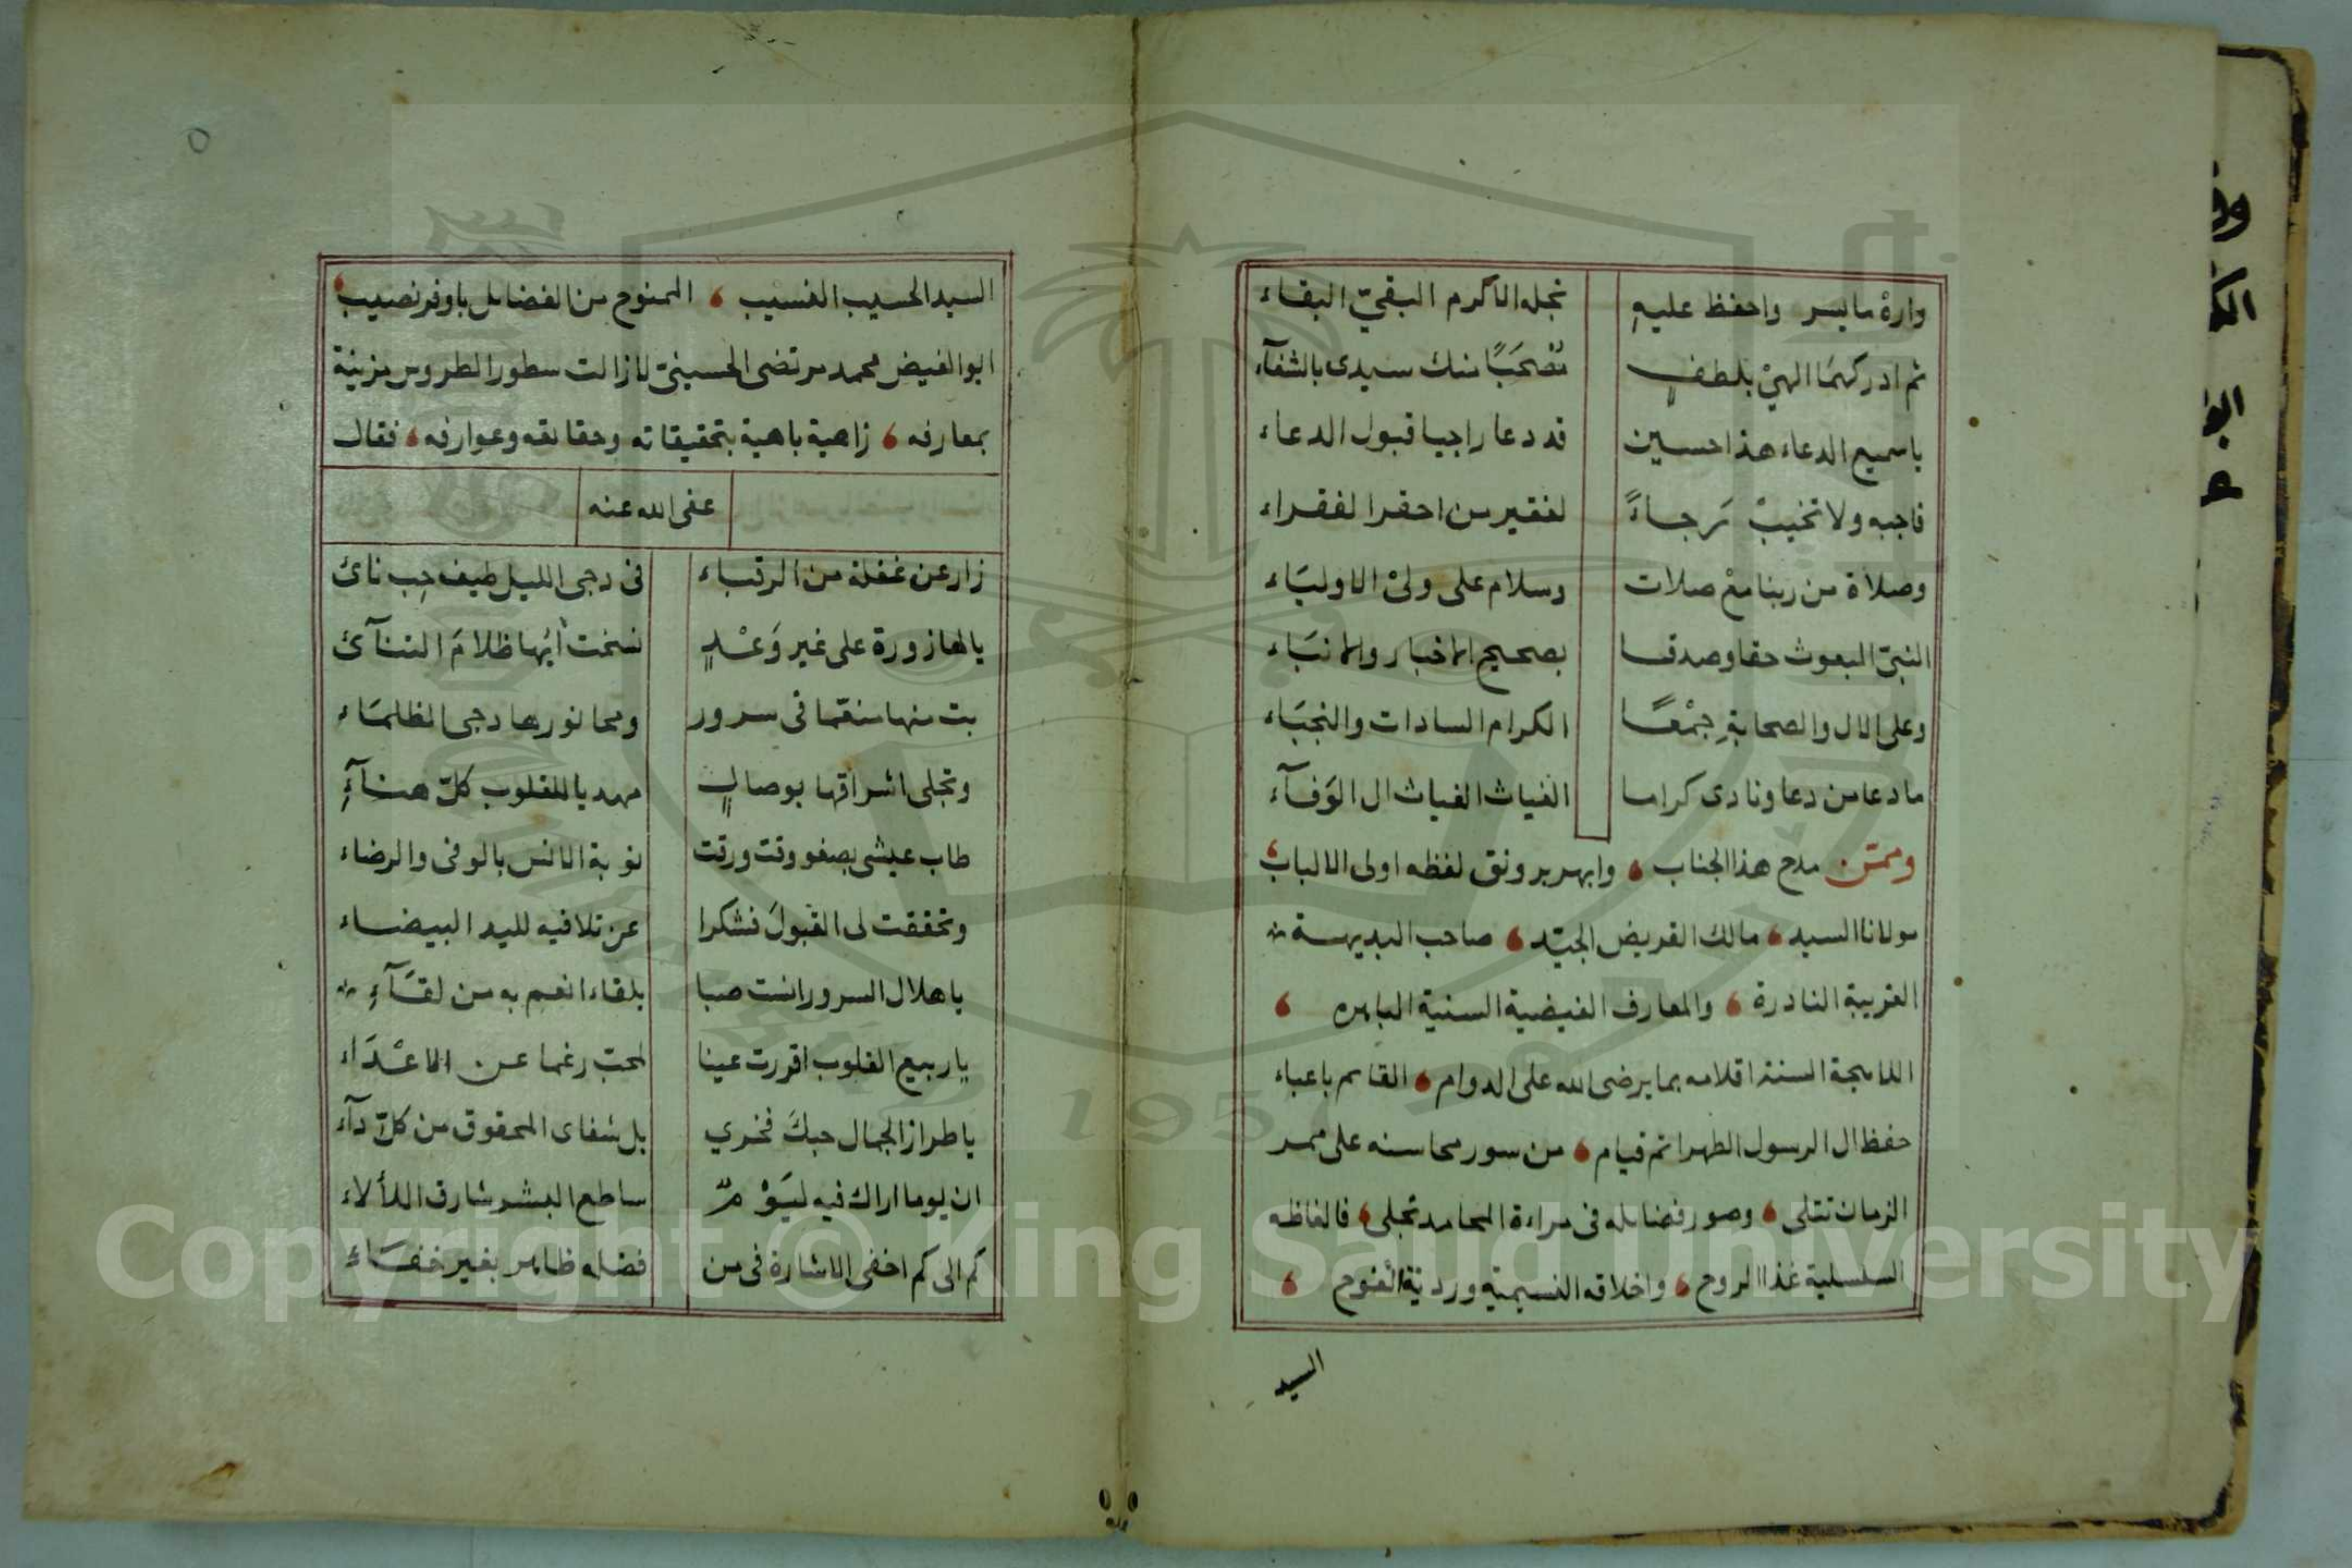 واره ما يسر واحفظ عليهِ نجله الاكرم البقيّ البقاء
ثم ادركهما الهيْ بلطفٍ تصْحَبًا منك سيدى بالشفآء
ياسميع الدعاء هذا حسين قد دعا راجيا قبول الدعاء
فاجبه ولا تخيبْ رجاءً لفقير من احقر الفقراء
وصلاة من ربنا معْ صلات وسلام على وليْ الاوليَاء
النبيّ المبعوث حقا وصدقا بصحيح الاخبار والانبَاء
وعلى الال والصحابةِ جمْعًا الكرام السادات والنجبَاء
ما دعا من دعا ونادى كراما الغياث الغياث ال الوَفآء
وممّن مدح هذا الجناب وابهر برونق لفظه اولى الالباب
مولانا السيد مالك القريض الجيّد صاحب البديهة
الغريبة النادرة والمعارف الفيضية السنية الباهره
اللامجة السنة اقلامه بما يرضى الله على الدوام القايم باعباء
حفظ ال الرسول الطهر اتم قيام من سور محاسنه على ممر
الزمان تتلى وصور فضايله فى مراءة المحامد تجلى فالفاظه
السلسلية غذا الروح واخلاقه النسيمية وردية الفنوح
السيد
السيد الحسيب النسيب الممنوح من الفضايل باوفر نصيب
ابو الفيض محمد مرتضى الحسينىّ لازالت سطور الطروس مزينة
بمعارفه زاهية باهية بتحقيقاته وحقائقه وعوارفه فقال
عفى الله عنه
زار عن غفلة من الرقباء فى دجى الليل طيف حِب نائ
يا لها زورة على غير وَعْدٍ نسخت ايُها ظلامَ التنآئ
بت منها منعّما فى سرور ومحا نورها دجى الظلمَاء
وتجلى اشراقها بوصالٍ مهديا للقلوب كلّ هنآءِ
طاب عيشى بصفو وقت ورقت نوبة الانس بالوفى والرضاء
وتحققت لى القبولَ فشكرا عن تلافيه لليد البيضاء
يا هلال السرور انست صبا بلقاء انعم به من لقآءِ
يا ربيع القلوب اقررت عينا لمحبّ رغما عن الاعْدَاء
يا طراز الجمال حبكَ فخري بل شفاى المحقوق من كلّ دآء
ان يوما اراك فيه ليَوْمٌ ساطع البشر شارق اللألاء
كم الى كم اخفى الاشارة فى من فضله ظاهر بغير خفاء
Copyright © King Saud University